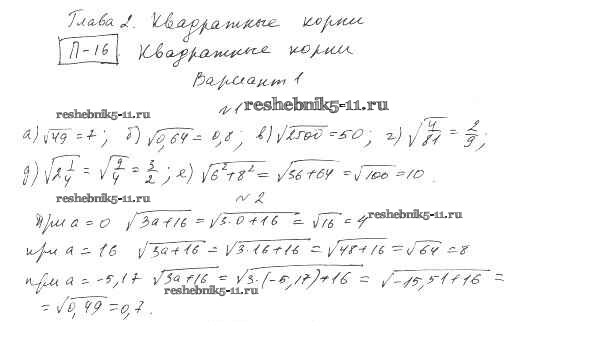 Глава 2. Квадратные корни
П-16 Квадратные корни
Вариант 1
№1 reshebnik5-11.ru
reshebnik5-11.ru
а) √49 = 7; б) √0,64 = 0,8; в) √2500 = 50; г) √(4/81) = 2/9;
д) √(2 1/4) = √(9/4) = 3/2; е) √(6²+8²) = √(36+64) = √100 = 10.
reshebnik5-11.ru
№2
при a = 0 √(3a+16) = √(3·0+16) = √16 = 4 reshebnik5-11.ru
при a = 16 √(3a+16) = √(3·16+16) = √(48+16) = √64 = 8
при a = -5,17 √(3a+16) = √(3·(-5,17)+16) = √(-15,51+16) =
reshebnik5-11.ru
= √0,49 = 0,7.